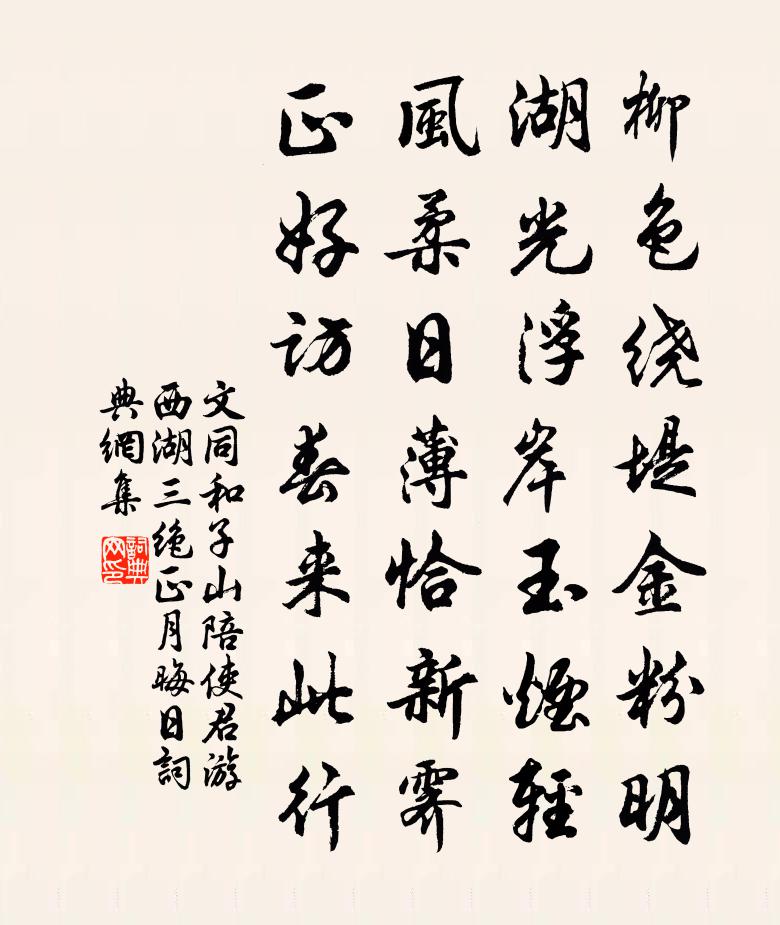 柳色绕堤金粉明
湖光浮岸玉煙輕
風柔日薄恰新霽
正好訪春来此行
文同和子山陪使君游
西湖三绝正月晦日詞
典網集
詞典
网印